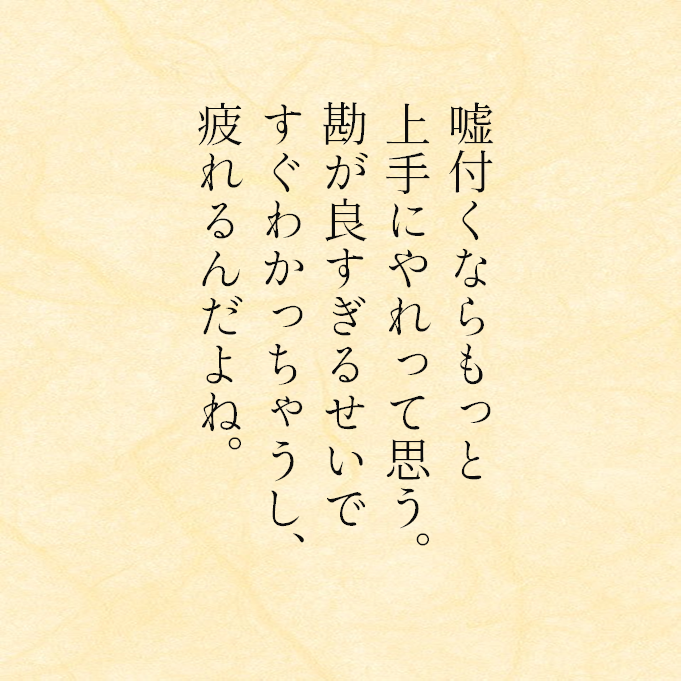 嘘付くならもっと
上手にやれって思う。
勘が良すぎるせいで
すぐわかっちゃうし、
疲れるんだよね。